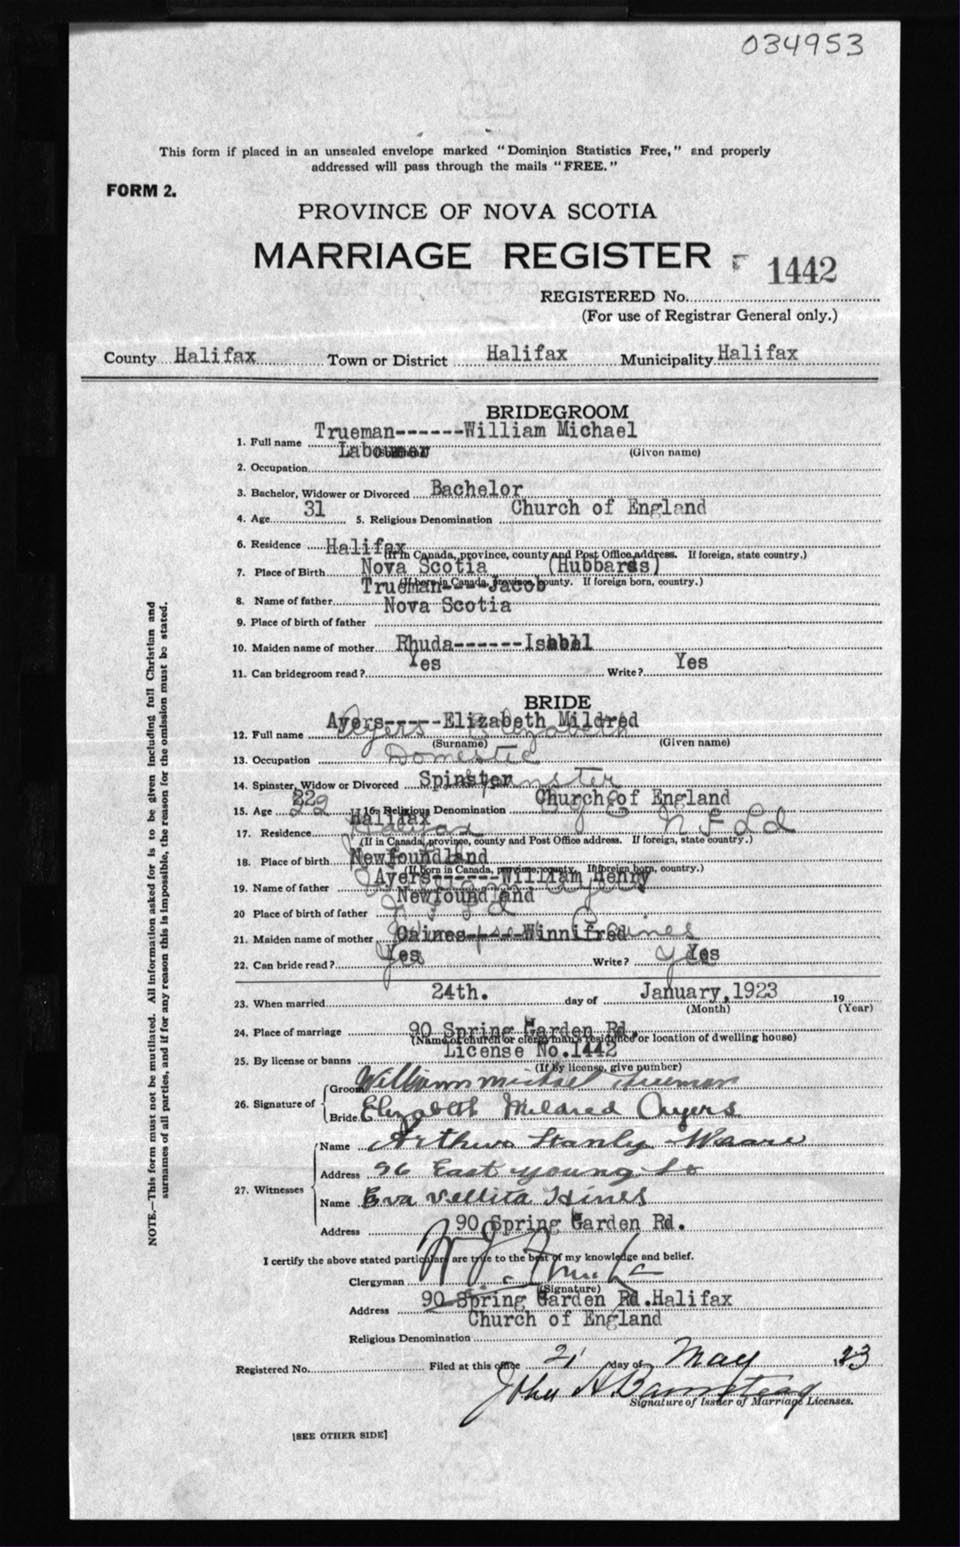 034953
This form if placed in an unsealed envelope marked "Dominion Statistics Free," and properly
addressed will pass through the mails "FREE."
FORM 2.
PROVINCE OF NOVA SCOTIA
MARRIAGE REGISTER
1442
REGISTERED No.
(For use of Registrar General only.)
County Halifax Town or District Halifax Municipality Halifax
BRIDEGROOM
1. Full name Trueman------William Michael
(Given name)
2. Occupation Labourer
3. Bachelor, Widower or Divorced Bachelor
4. Age 31 5. Religious Denomination Church of England
6. Residence Halifax
(If in Canada, province, county and Post Office address. If foreign, state country.)
7. Place of Birth Nova Scotia (Hubbards)
(If born in Canada, province, county. If foreign born, country.)
8. Name of father Trueman----Jacob
9. Place of birth of father Nova Scotia
10. Maiden name of mother Rhuda------Isabel
11. Can bridegroom read? Yes Write? Yes
BRIDE
12. Full name Ayers-----Elizabeth Mildred
Ayers Elizabeth
(Surname) (Given name)
13. Occupation Domestic
14. Spinster, Widow or Divorced Spinster
15. Age 22 16. Religious Denomination Church of England
17. Residence Halifax
Halifax Nfld
(If in Canada, province, county and Post Office address. If foreign, state country.)
18. Place of birth Newfoundland
(If born in Canada, province, county. If foreign born, country.)
19. Name of father Ayers------William Henry
20 Place of birth of father Newfoundland
Nfld
21. Maiden name of mother Gaines----Winnifred
22. Can bride read? Yes Write? Yes
23. When married 24th. day of January,1923 19
(Month) (Year)
24. Place of marriage 90 Spring Garden Rd.
(Name of church or clergyman's residence or location of dwelling house)
25. By license or banns License No.1442
(If by license, give number)
26. Signature of
Groom William Michael Trueman
Bride Elizabeth Mildred Ayers
27. Witnesses
Name Arthur Stanly
Address 96 East Young St
Name Eva Vellita Hines
Address 90 Spring Garden Rd.
I certify the above stated particulars are true to the best of my knowledge and belief.
Clergyman
(Signature)
Address 90 Spring Garden Rd.Halifax
Religious Denomination Church of England
Registered No. Filed at this office 21 day of May 1923
John A Barnstead
Signature of Issuer of Marriage Licenses.
[SEE OTHER SIDE]
NOTE.—This form must not be mutilated. All information asked for is to be given including full Christian and
surnames of all parties, and if for any reason this is impossible, the reason for the omission must be stated.